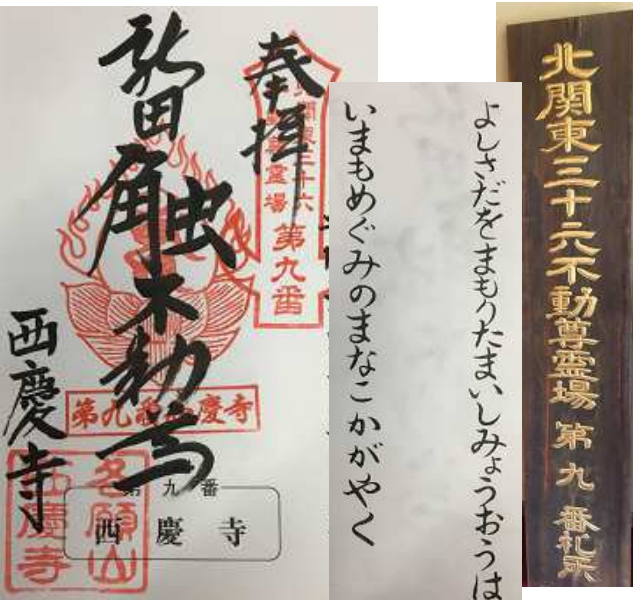 北関東三十六不動尊霊場 第九番札所
よしさだをまもりたまいしみょうおうは
いまもめぐみのまなこかがやく
奉拝
北関東三十六
不動尊霊場
第九番
新田触不動尊
西慶寺
第九番西慶寺
名願山
西慶寺
第九番
西慶寺